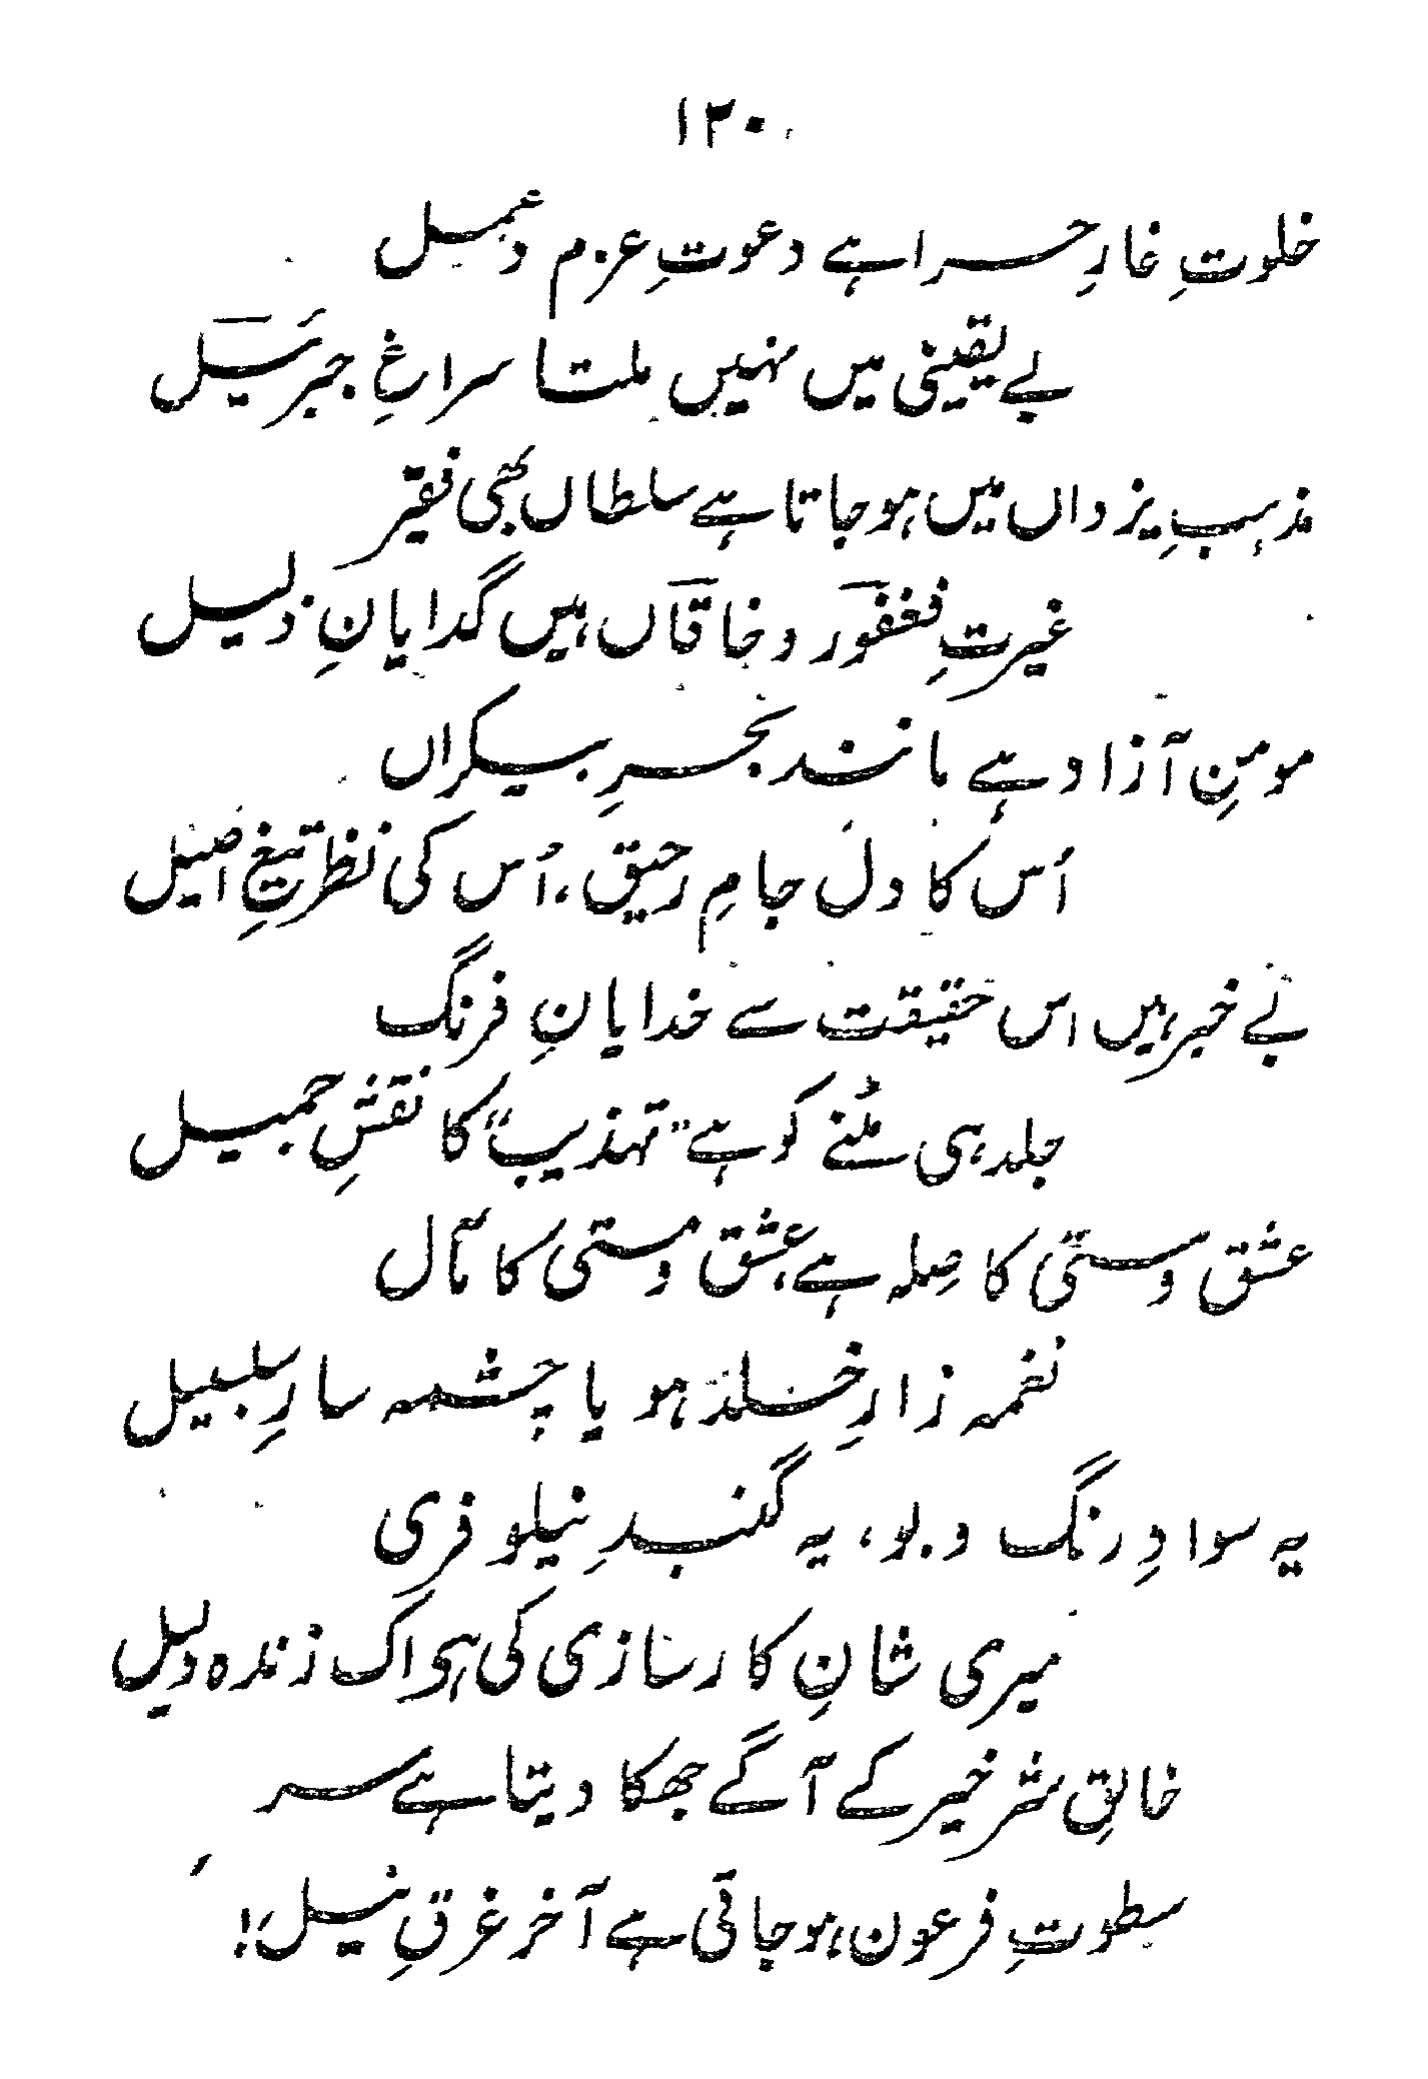 ۱۳۰
خلوتِ غارِ حرا ہے دعوتِ عزم و عمل
بے یقینی میں نہیں ملتا سراغِ جبرئیل
مذہبِ یزداں میں ہو جاتا ہے سلطاں بھی فقیر
غیرتِ فغفور و خاقاں ہیں گدایانِ ذلیل
مومنِ آزاد ہے مانند بحرِ بیکراں
اُس کا دل جامِ رحیق، اُس کی نظر تیغِ اصیل
بے خبر ہیں اس حقیقت سے خدایانِ فرنگ
جلد ہی مٹنے کو ہے "تہذیب" کا نقشِ جمیل
عشق و مستی کا صِلہ ہے، عشق و مستی کا مآل
نغمہ زارِ خلد ہو یا چشمہ سارِ سلسبیل
یہ سوادِ رنگ و بو، یہ گنبدِ نیلوفری
میری شانِ کارسازی کی ہو اک زندہ دلیل
خالقِ شر خیر کے آگے جھکا دیتا ہے سر
سطوتِ فرعون ہو جاتی ہے آخر غرقِ نیل!